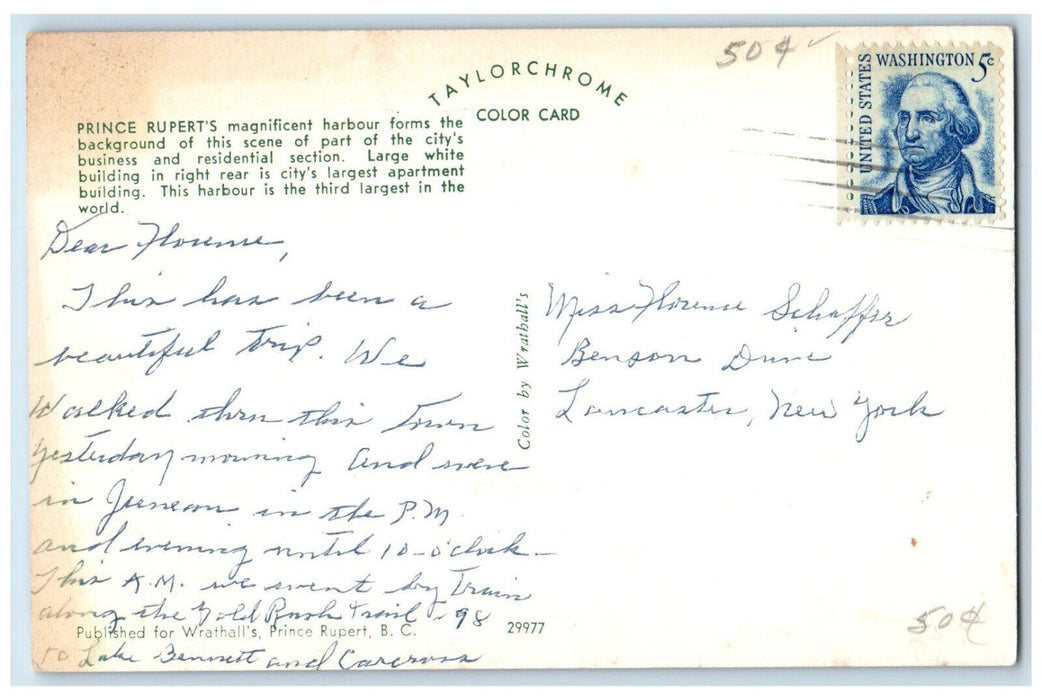 50¢
TAYLORCHROME
COLOR CARD
UNITED STATES
WASHINGTON 5c
PRINCE RUPERT'S magnificent harbour forms the
background of this scene of part of the city's
business and residential section. Large white
building in right rear is city's largest apartment
building. This harbour is the third largest in the
world.
Dear Florence,
This has been a
beautiful trip. We
walked thru this town
yesterday morning and were
in Juneau in the P.M
and evening until 10-o'clock-
This A.M. we went by Train
along the Gold Rush Trail - 98
to Lake Bennett and Carcross
Published for Wrathall's, Prince Rupert, B. C. 29977
Color by Wrathall's
Miss Florence Schaffer
Benson Drive
Lancaster, New York
50¢